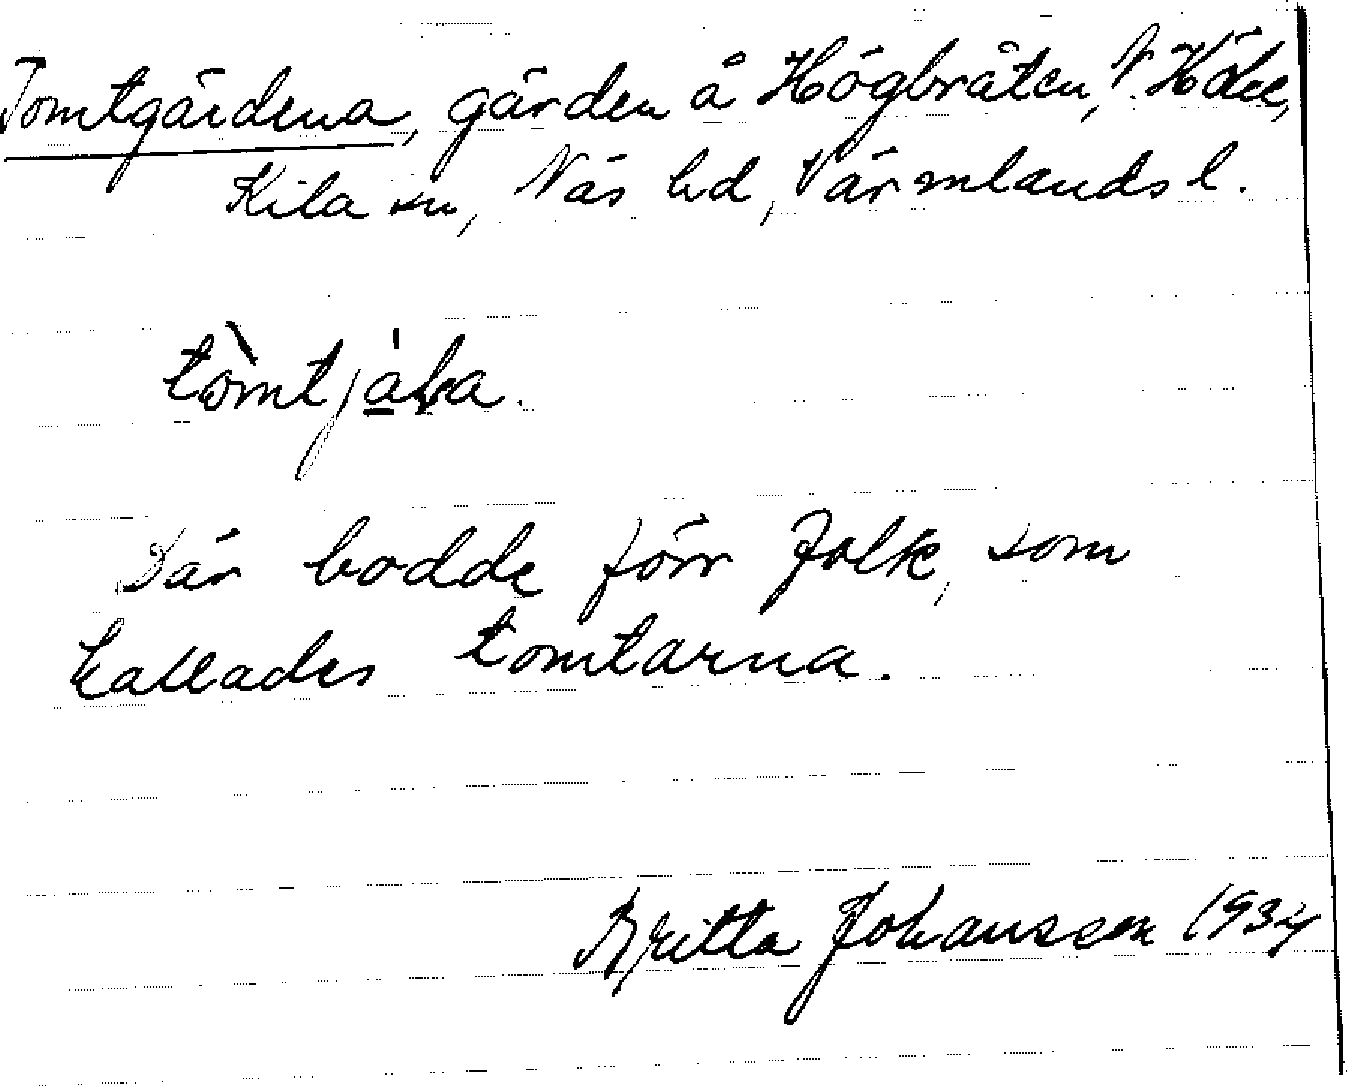 Tomtgärdena, gärden å Högbråten, V. Håbol,
Kila sn, Näs hd, Värmlands l.
tòmtjáka.
Där bodde förr folk, som
kallades tomtarna.
Britta Johansson 1934